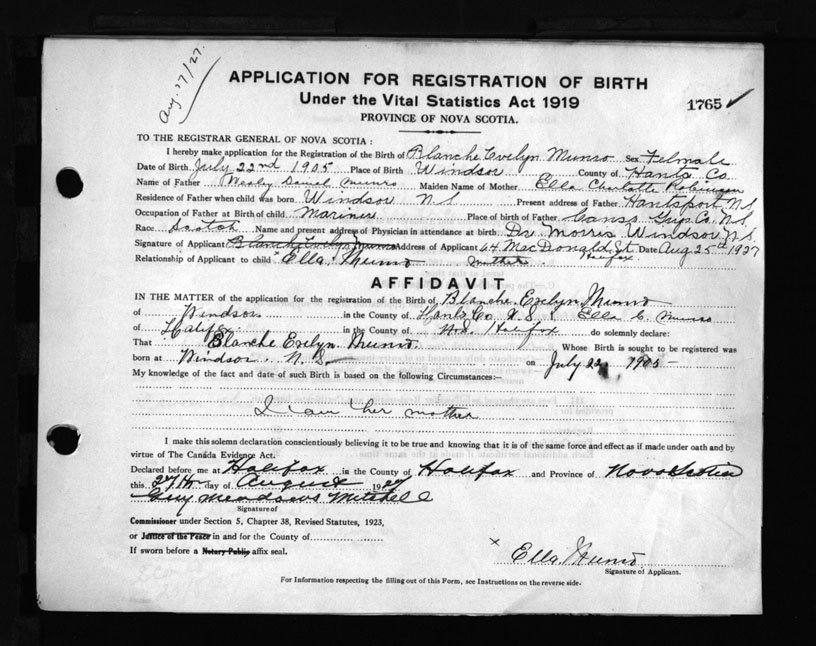 Aug. 27/27.
APPLICATION FOR REGISTRATION OF BIRTH
Under the Vital Statistics Act 1919
1765 ✓
PROVINCE OF NOVA SCOTIA.
TO THE REGISTRAR GENERAL OF NOVA SCOTIA :
I hereby make application for the Registration of the Birth of Blanche Evelyn Munro Sex Felmale
Date of Birth July 22nd 1905 Place of Birth Windsor County of Hants Co
Name of Father Daniel Munro Maiden Name of Mother Ella Charlotte Robinson
Residence of Father when child was born Windsor N S Present address of Father Hantsport N S
Occupation of Father at Birth of child Mariner Place of birth of Father Canso Guys. Co. N S
Race Scotch Name and present address of Physician in attendance at birth Dr Morris Windsor N S
Signature of Applicant Blanche Evelyn Munro Address of Applicant 64 MacDonald St. Date Aug 25th 1927
Halifax.
Relationship of Applicant to child Ella Munro mother.
AFFIDAVIT
IN THE MATTER of the application for the registration of the Birth of Blanche Evelyn Munro
of Windsor in the County of Hants Co N. S. I Ella C. Munro
of Halifax in the County of N.S. Halifax do solemnly declare:
That Blanche Evelyn Munro Whose Birth is sought to be registered was
born at Windsor. N. S. on July 22 1905 —
My knowledge of the fact and date of such Birth is based on the following Circumstances:
I am her mother
I make this solemn declaration conscientiously believing it to be true and knowing that it is of the same force and effect as if made under oath and by
virtue of The Canada Evidence Act.
Declared before me at Halifax in the County of Halifax and Province of Nova Scotia
this 27th day of August 1927
Guy Meadows Mitchell
Signature of
Commissioner under Section 5, Chapter 38, Revised Statutes, 1923,
or Justice of the Peace in and for the County of
If sworn before a Notary Public affix seal.
x Ella Munro
Signature of Applicant.
For Information respecting the filling out of this Form, see Instructions on the reverse side.